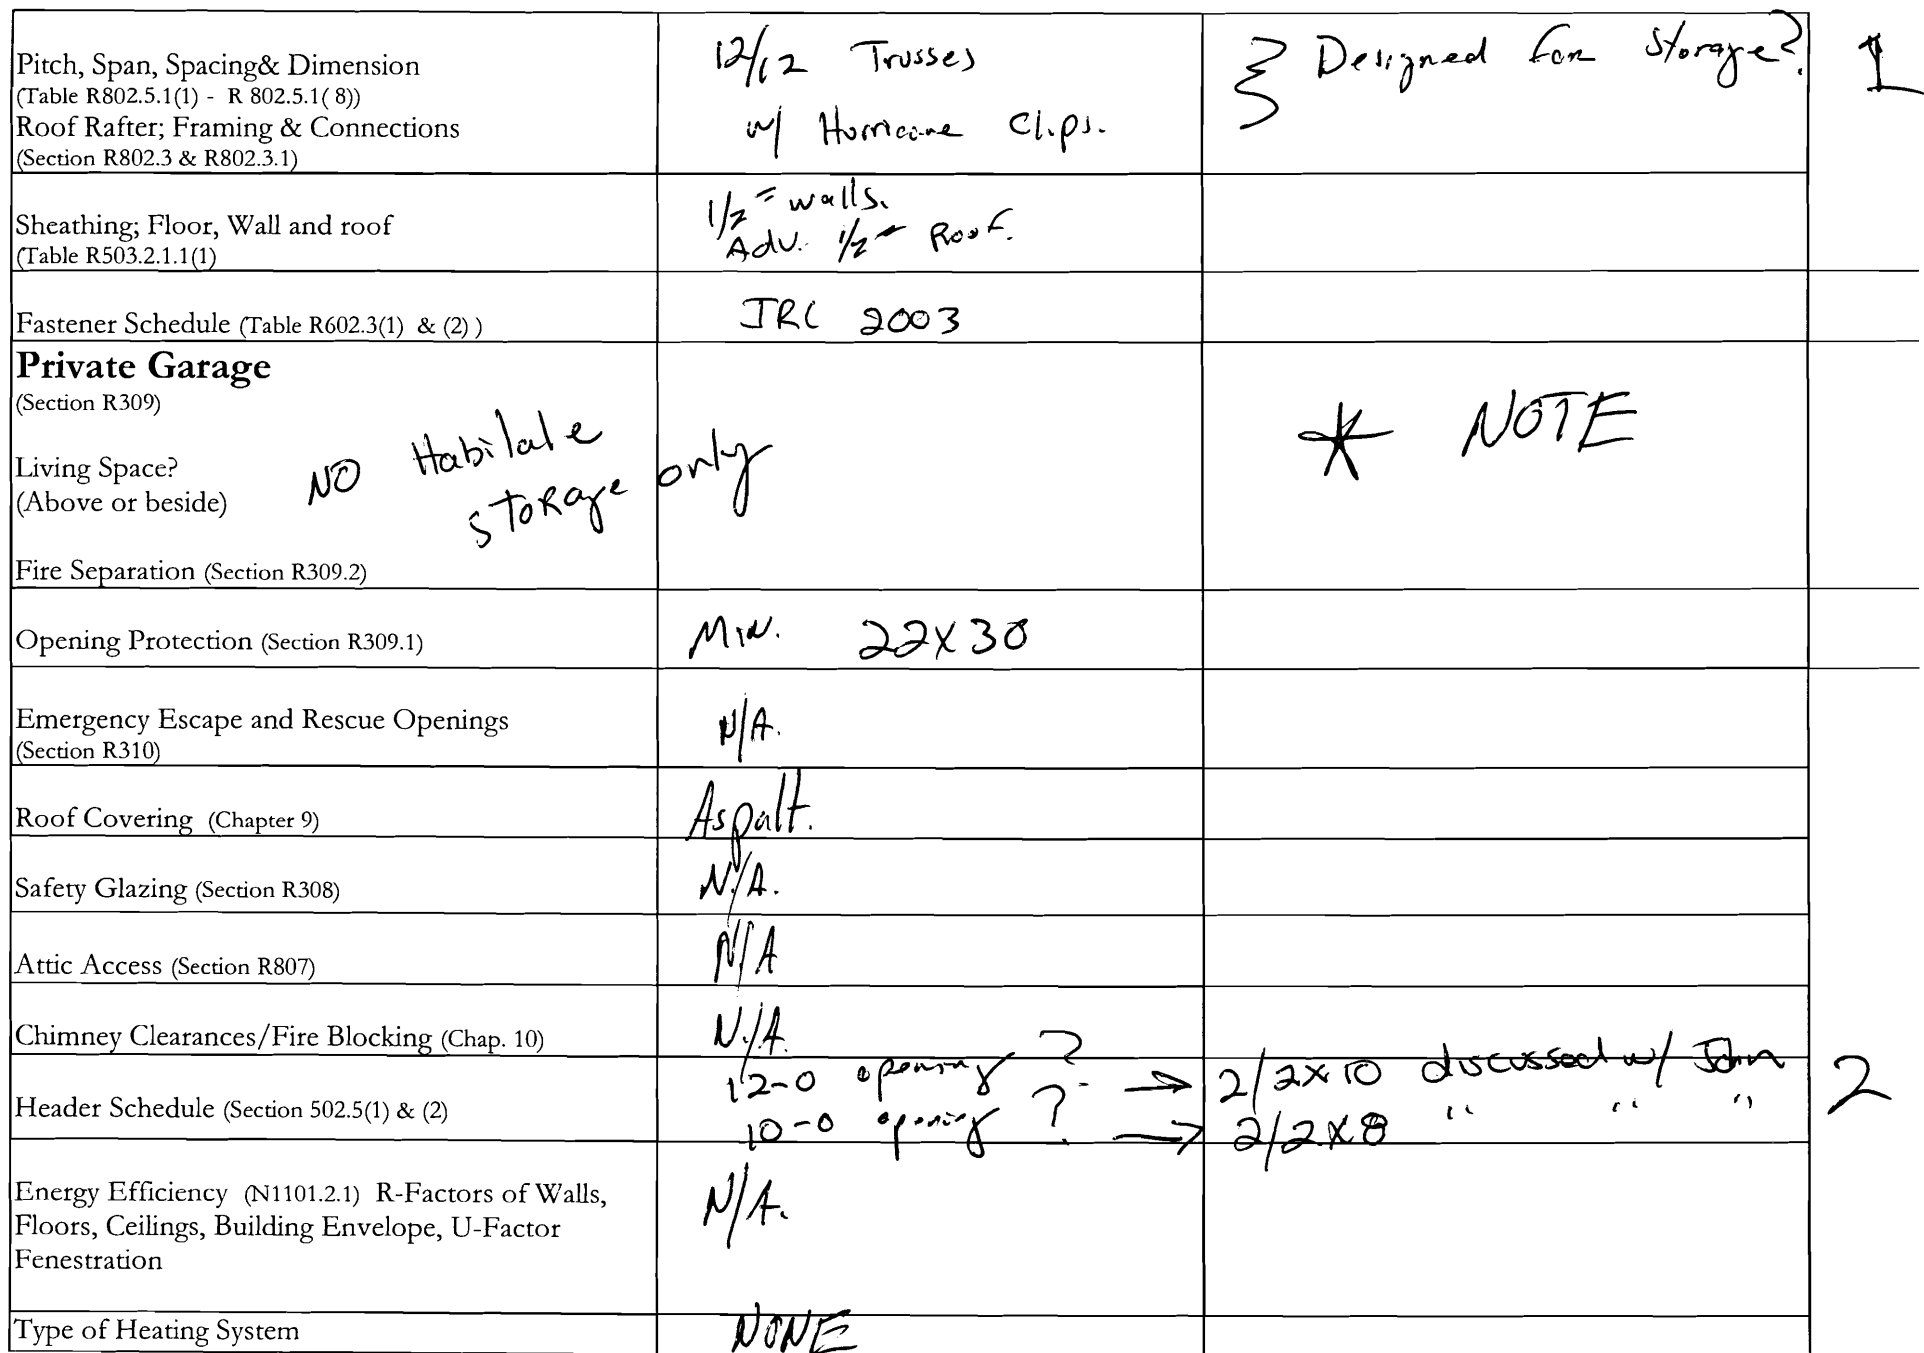 Pitch, Span, Spacing& Dimension
(Table R802.5.1(1) - R 802.5.1( 8))
Roof Rafter; Framing & Connections
(Section R802.3 & R802.3.1)
12/12 Trusses
w/ Hurricane Clips.
} Designed for Storage?
1
Sheathing; Floor, Wall and roof
(Table R503.2.1.1(1)
1/2" walls.
Adv. 1/2" Roof.
Fastener Schedule (Table R602.3(1) & (2) )
IRC 2003
Private Garage
(Section R309)
Living Space?
(Above or beside)
NO Habitate
storage only
* NOTE
Fire Separation (Section R309.2)
Opening Protection (Section R309.1)
Min. 22x30
Emergency Escape and Rescue Openings
(Section R310)
N/A.
Roof Covering (Chapter 9)
Aspalt.
Safety Glazing (Section R308)
N/A.
Attic Access (Section R807)
N/A
Chimney Clearances/Fire Blocking (Chap. 10)
N/A.
Header Schedule (Section 502.5(1) & (2)
12-0 opening ? → 2/2x10 discussed w/ John
10-0 opening ? → 2/2x8 " " "
2
Energy Efficiency (N1101.2.1) R-Factors of Walls,
Floors, Ceilings, Building Envelope, U-Factor
Fenestration
N/A.
Type of Heating System
NONE